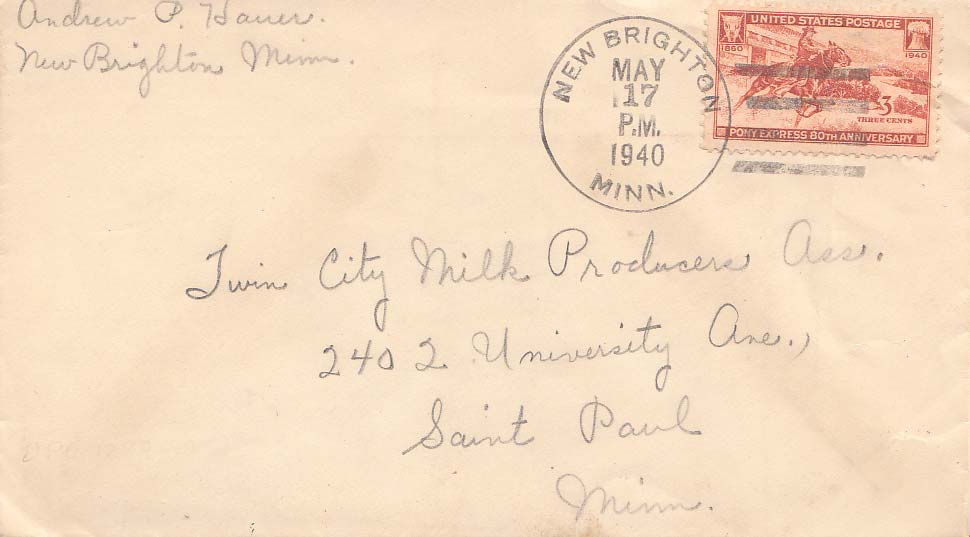 Andrew P. Hauer.
New Brighton Minn.
NEW BRIGHTON
MAY
17
P.M.
1940
MINN.
UNITED STATES POSTAGE
1860 1940
3
THREE CENTS
PONY EXPRESS 80TH ANNIVERSARY
Twin City Milk Producers Ass.
2402 University Ave.,
Saint Paul
Minn.